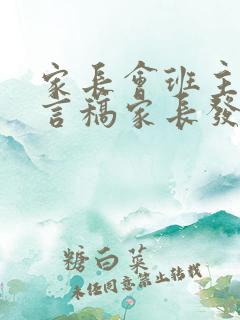 家長會班主
言稿家長發
糖白菜
未经同意禁止转载